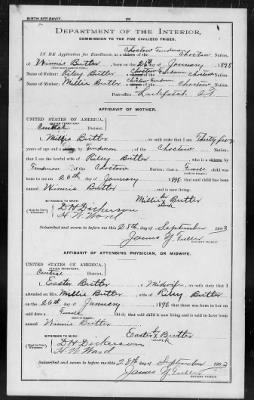 BIRTH AFFIDAVIT.
DEPARTMENT OF THE INTERIOR,
COMMISSION TO THE FIVE CIVILIZED TRIBES.
Choctaw Freedman
IN RE Application for Enrollment, as a citizen of the Choctaw Nation,
of Winnie Butler, born on the 26th day of January, 1898
Choctaw Freedman
Name of Father: Riley Butler a citizen of the Choctaw Nation.
Choctaw Freedman
Name of Mother: Millie Butler a citizen of the Choctaw Nation.
AFFIDAVIT OF MOTHER.
UNITED STATES OF AMERICA,
Central District.
I, Millie Butler, on oath state that I am Thirty four
years of age and a Freedman of the Choctaw Nation;
that I am the lawful wife of Riley Butler, who is a
Freedman of the Choctaw Nation; that a Female child was
born to me on 26th day of January, 1898, that said child has been
named Winnie Butler, and is now living.
Millie Butler
WITNESSES TO MARK:
D. H. Dickerson
H. W. Ward
Subscribed and sworn to before me this 28th day of September 1903
James
NOTARY PUBLIC.
AFFIDAVIT OF ATTENDING PHYSICIAN, OR MIDWIFE.
UNITED STATES OF AMERICA,
Central District.
I, Easter Butler, a Midwife, on oath state that I
attended on Mrs. Millie Butler, wife of Riley Butler
on the 26th day of January, 1898 that there was born to her on
said date a Female child; that said child is now living and is said to have been
named Winnie Butler
Easter Butler
WITNESSES TO MARK:
D. H. Dickerson
H. W. Ward
Subscribed and sworn to before me this 28th day of September 1903
James
NOTARY PUBLIC.